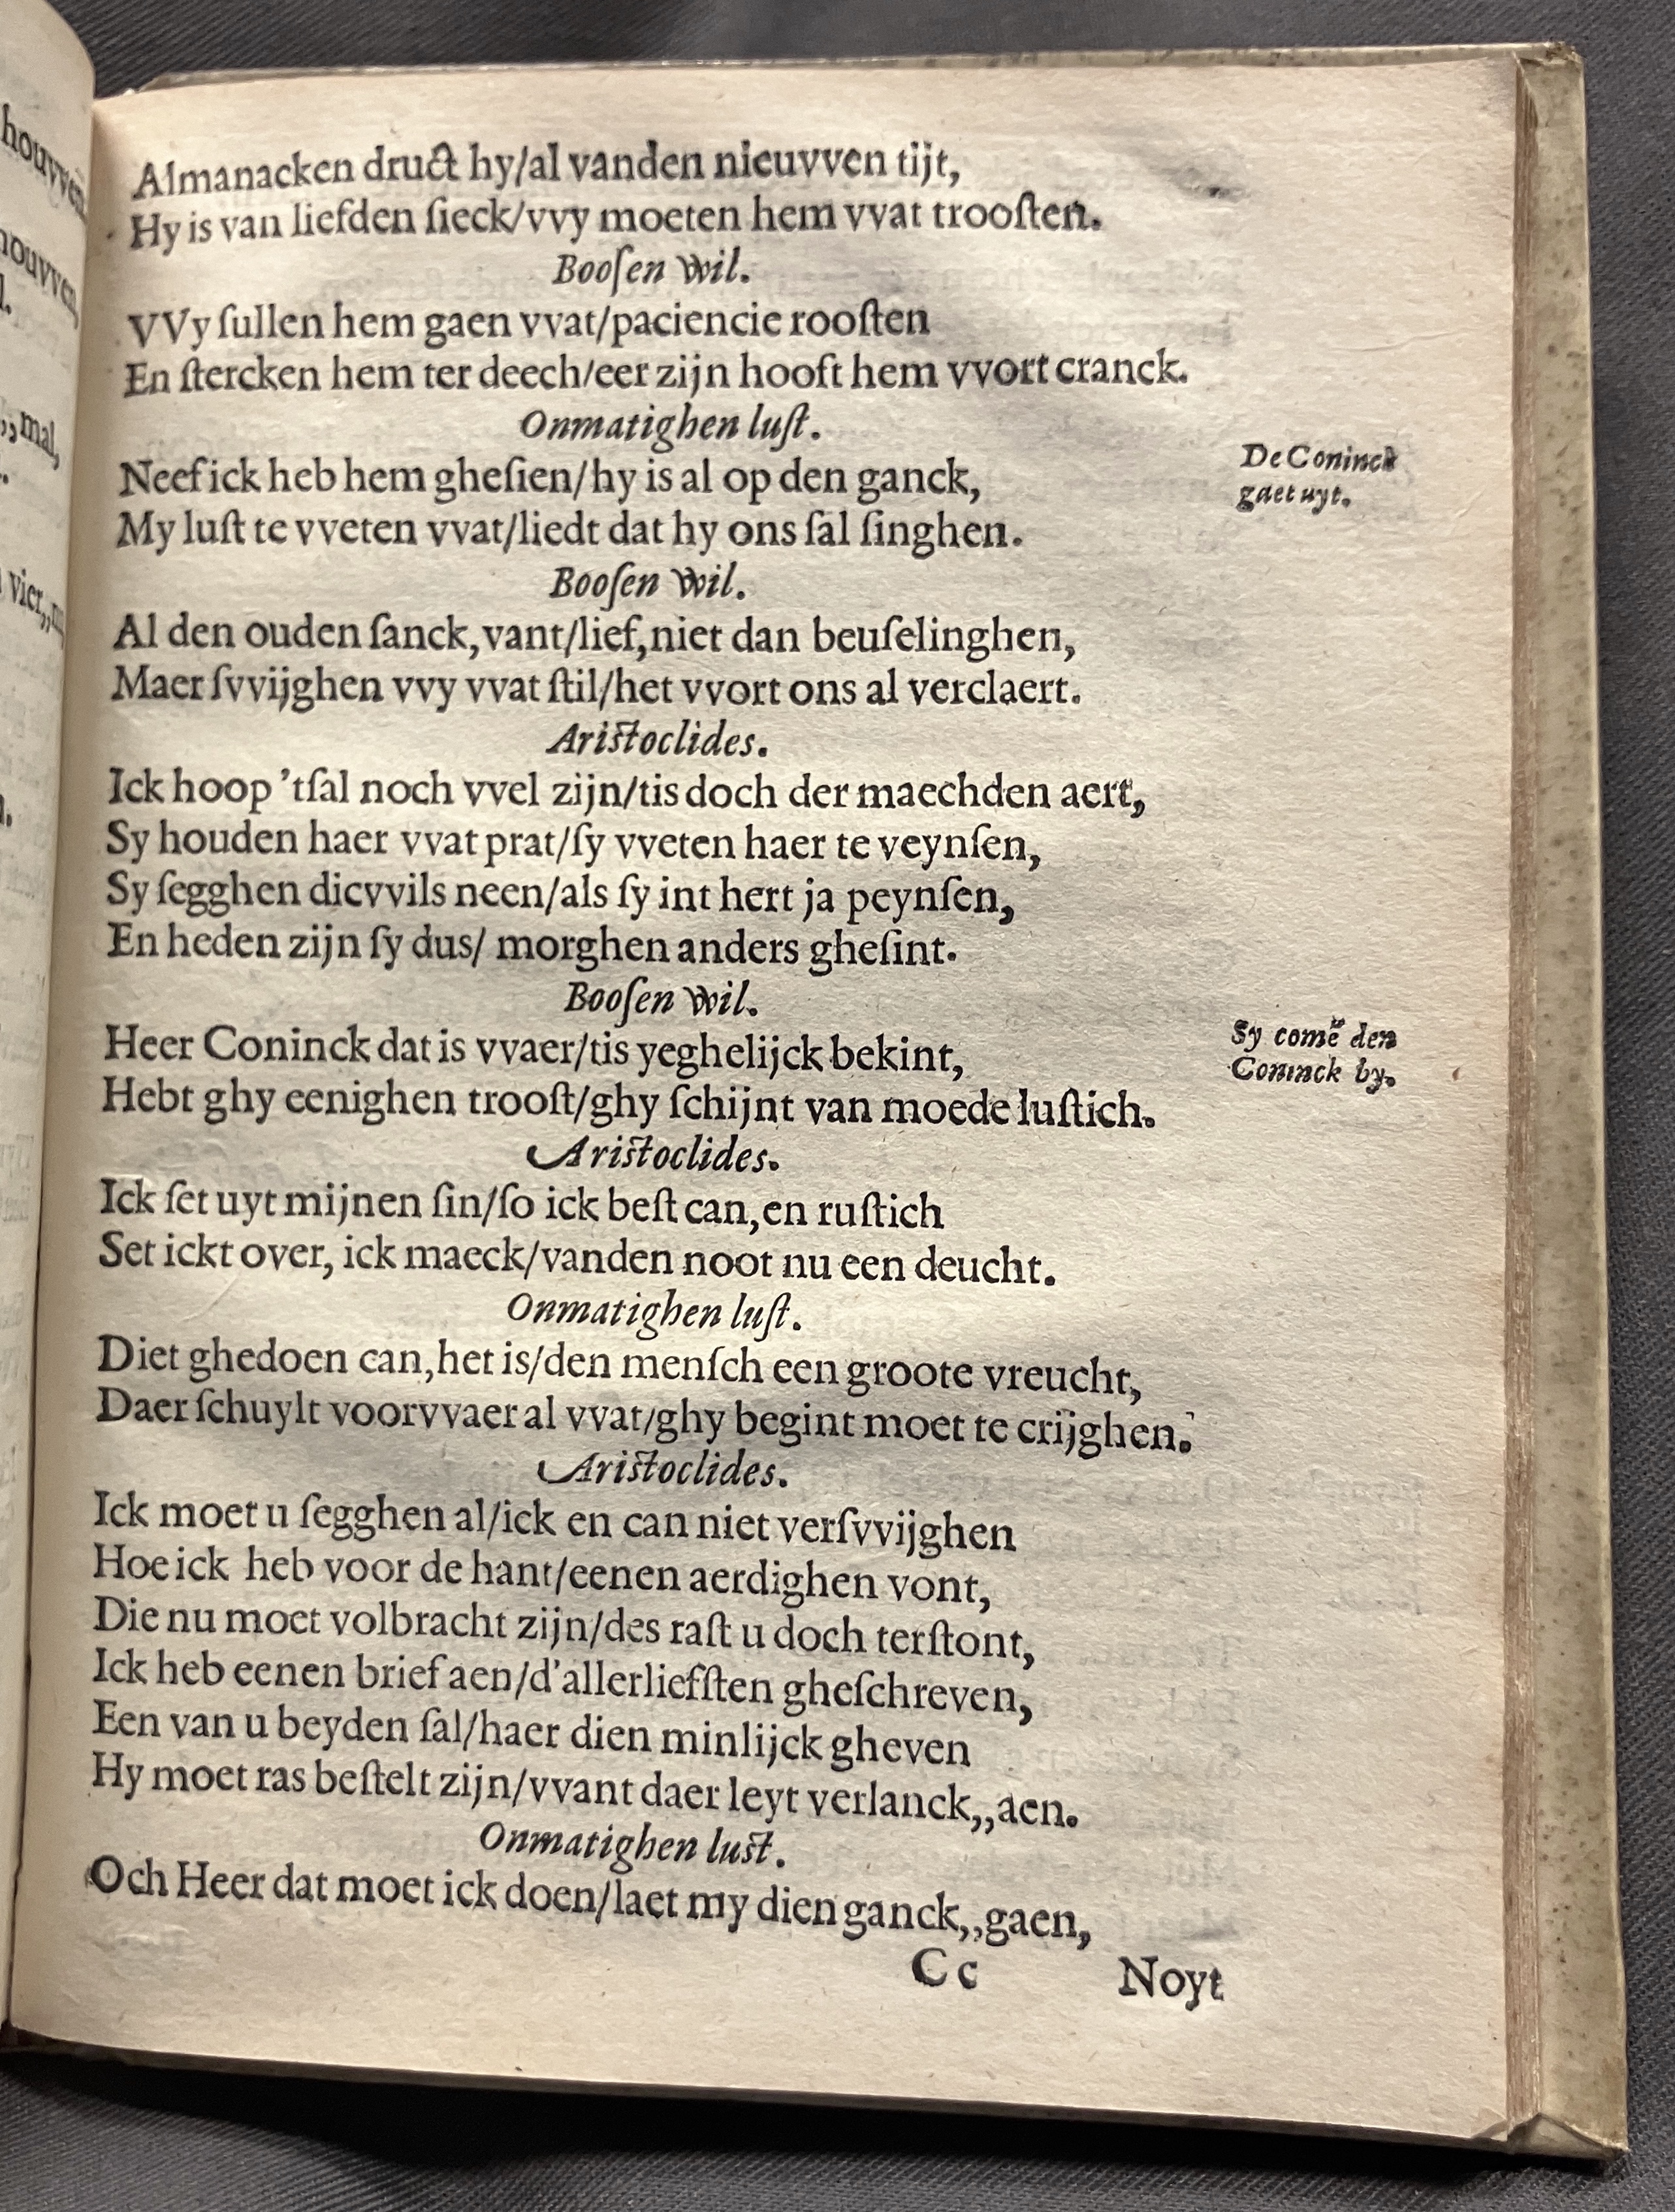 Almanacken druct hy/al vanden nieuvven tijt,
Hy is van liefden ſieck/vvy moeten hem vvat trooſten.
Booſen Wil.
VVy ſullen hem gaen vvat/paciencie rooſten
En ſtercken hem ter deech/eer zijn hooft hem vvort cranck.
Onmatighen luſt.
Neef ick heb hem gheſien/hy is al op den ganck,
De Coninck
gaet uyt.
My luſt te vveten vvat/liedt dat hy ons ſal ſinghen.
Booſen Wil.
Al den ouden ſanck,vant/lief,niet dan beuſelinghen,
Maer ſvvijghen vvy vvat ſtil/het vvort ons al verclaert.
Ariſtoclides.
Ick hoop 'tſal noch vvel zijn/tis doch der maechden aert,
Sy houden haer vvat prat/ſy vveten haer te veynſen,
Sy ſegghen dicvvils neen/als ſy int hert ja peynſen,
En heden zijn ſy dus/ morghen anders gheſint.
Booſen Wil.
Heer Coninck dat is vvaer/tis yeghelijck bekint,
Sy comẽ den
Coninck by.
Hebt ghy eenighen trooſt/ghy ſchijnt van moede luſtich.
Ariſtoclides.
Ick ſet uyt mijnen ſin/ſo ick beſt can,en ruſtich
Set ickt over, ick maeck/vanden noot nu een deucht.
Onmatighen luſt.
Diet ghedoen can,het is/den menſch een groote vreucht,
Daer ſchuylt voorvvaer al vvat/ghy begint moet te crijghen.
Ariſtoclides.
Ick moet u ſegghen al/ick en can niet verſvvijghen
Hoe ick heb voor de hant/eenen aerdighen vont,
Die nu moet volbracht zijn/des raſt u doch terſtont,
Ick heb eenen brief aen/d'allerliefſten gheſchreven,
Een van u beyden ſal/haer dien minlijck gheven
Hy moet ras beſtelt zijn/vvant daer leyt verlanck,,aen.
Onmatighen luſt.
Och Heer dat moet ick doen/laet my dien ganck,,gaen,
Cc Noyt
houvven.
houvven
l.
,,mal,
vier,,